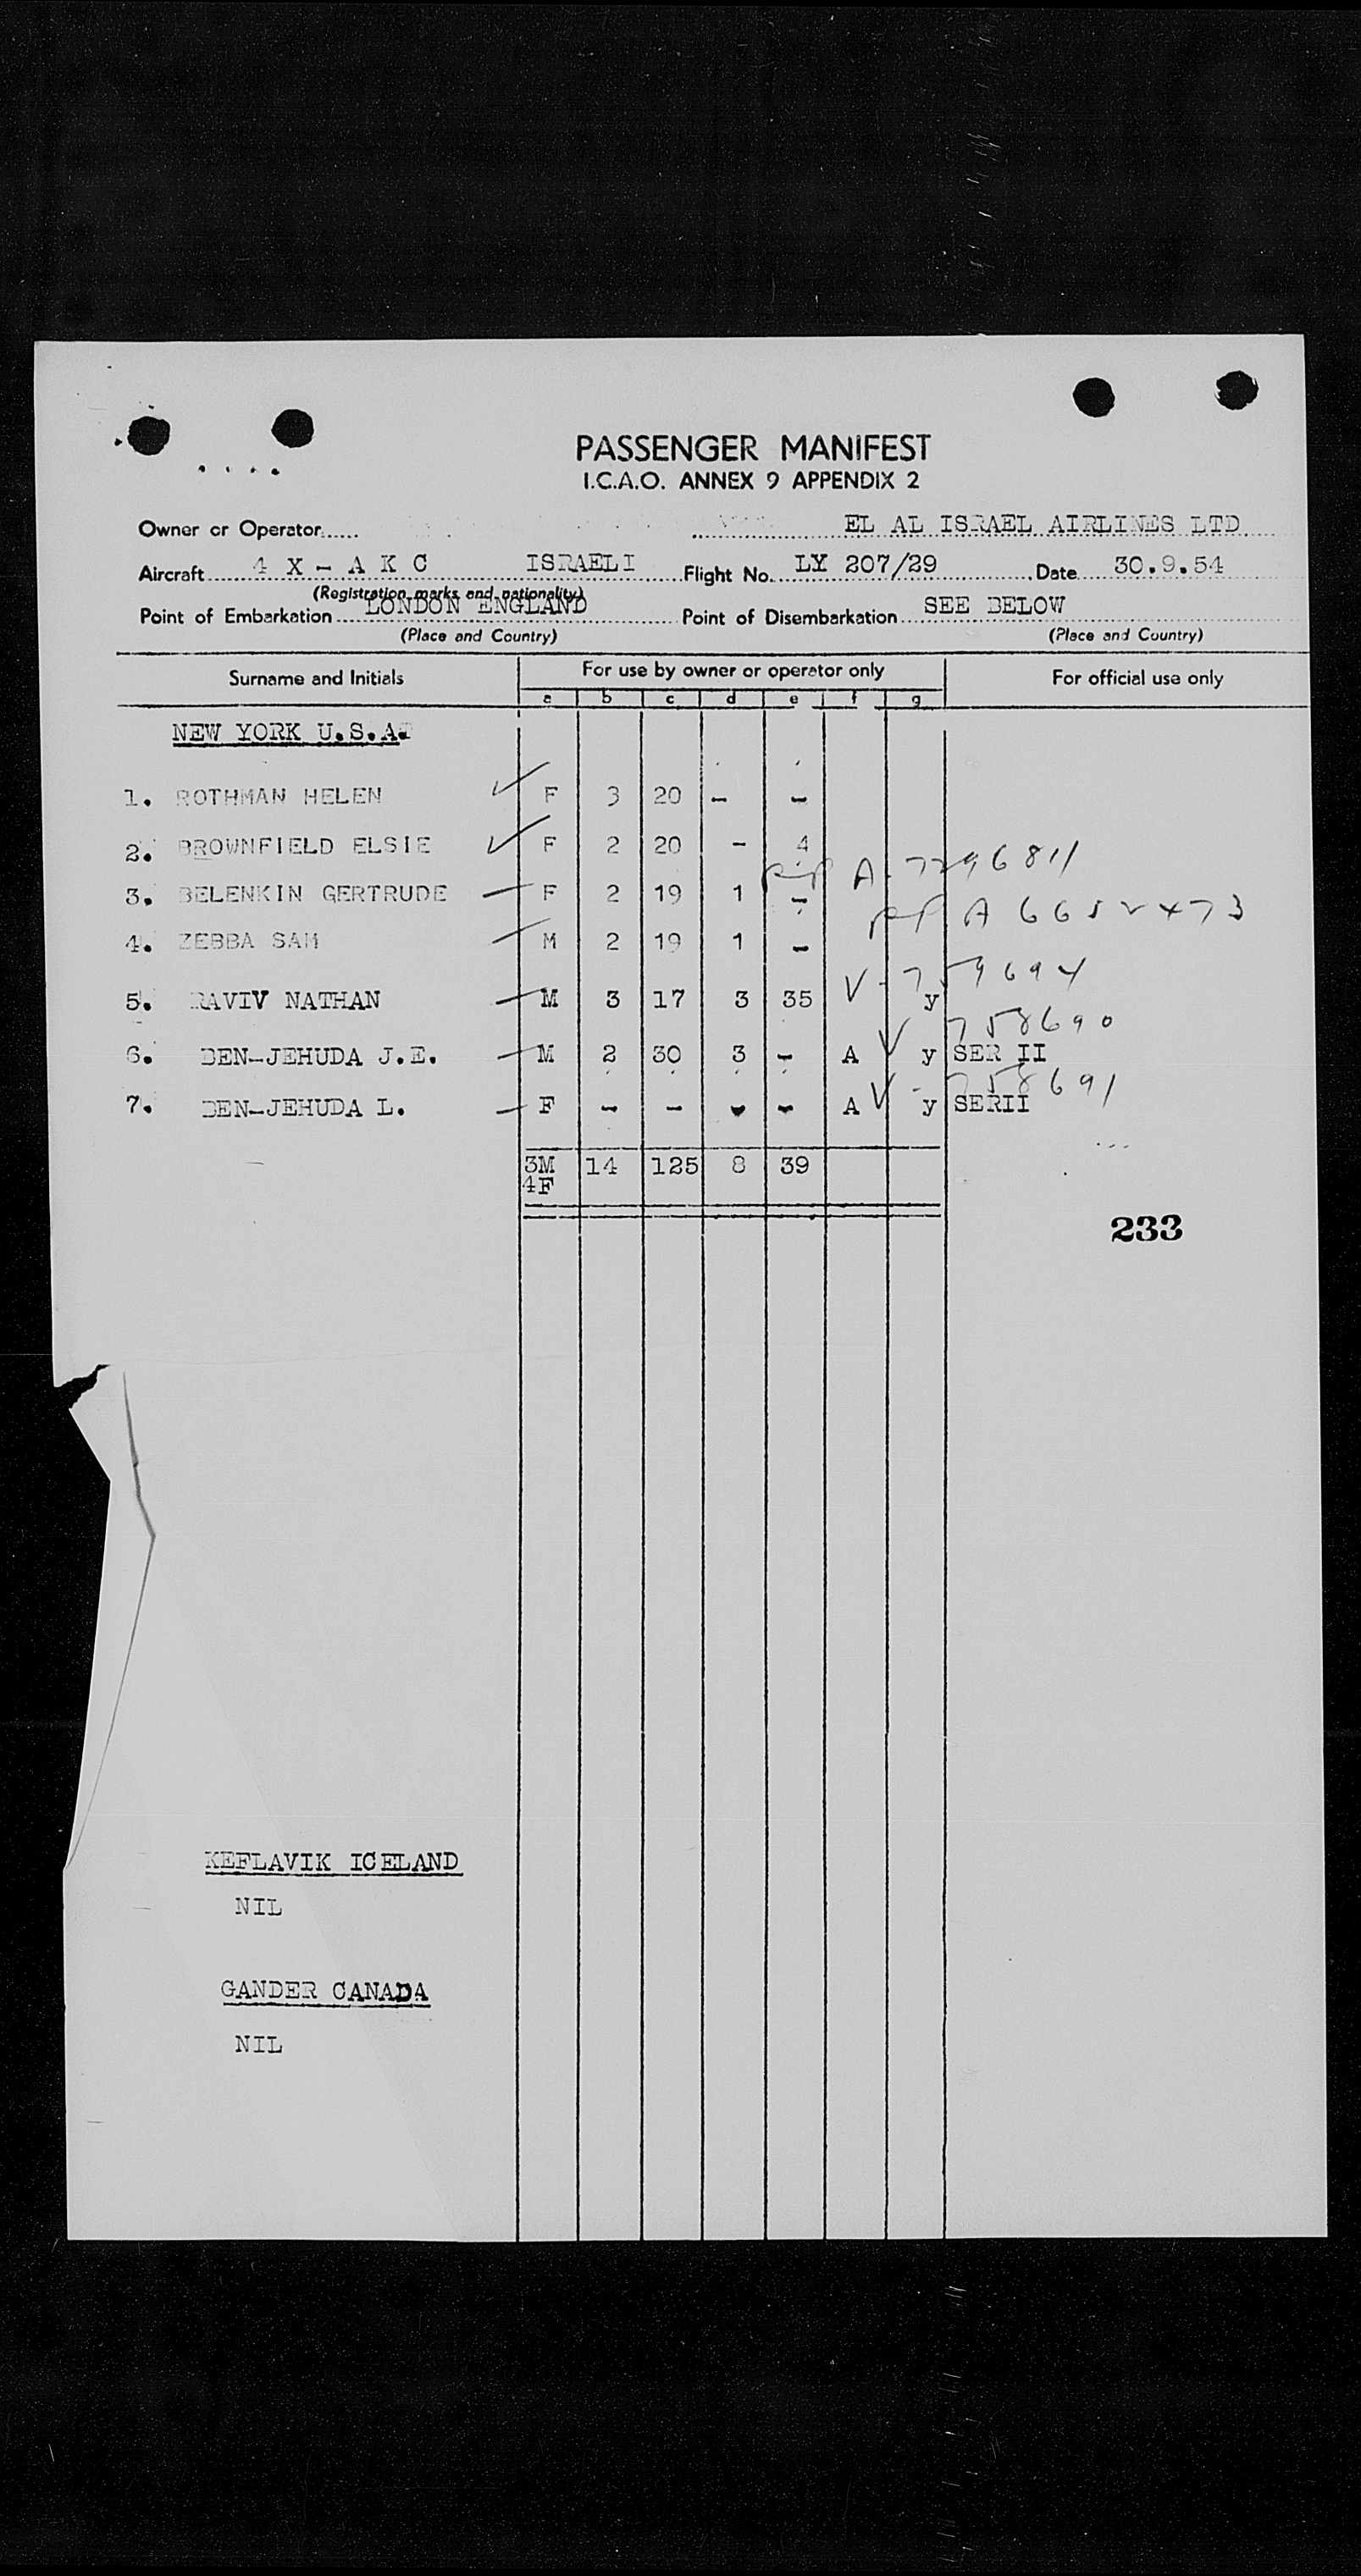 PASSENGER MANIFEST
I.C.A.O. ANNEX 9 APPENDIX 2
Owner or Operator...... EL AL ISRAEL AIRLINES LTD
Aircraft 4 X - A K C ISRAELI Flight No. LY 207/29 Date 30.9.54
(Registration marks and nationality)
Point of Embarkation LONDON ENGLAND Point of Disembarkation SEE BELOW
(Place and Country) (Place and Country)
Surname and Initials For use by owner or operator only For official use only
a b c d e f g
NEW YORK U.S.A.
1. ROTHMAN HELEN F 3 20 - -
2. BROWNFIELD ELSIE F 2 20 - 4
A-7796811
3. BELENKIN GERTRUDE F 2 19 1 -
A
4. ZEBBA SAM M 2 19 1 -
V-759694
5. RAVIV NATHAN M 3 17 3 35 y
V 758690
6. BEN-JEHUDA J.E. M 2 30 3 - A y SER II
V-758691
7. BEN-JEHUDA L. F - - - - A y SERII
3M 14 125 8 39
4F
233
KEFLAVIK ICELAND
NIL
GANDER CANADA
NIL